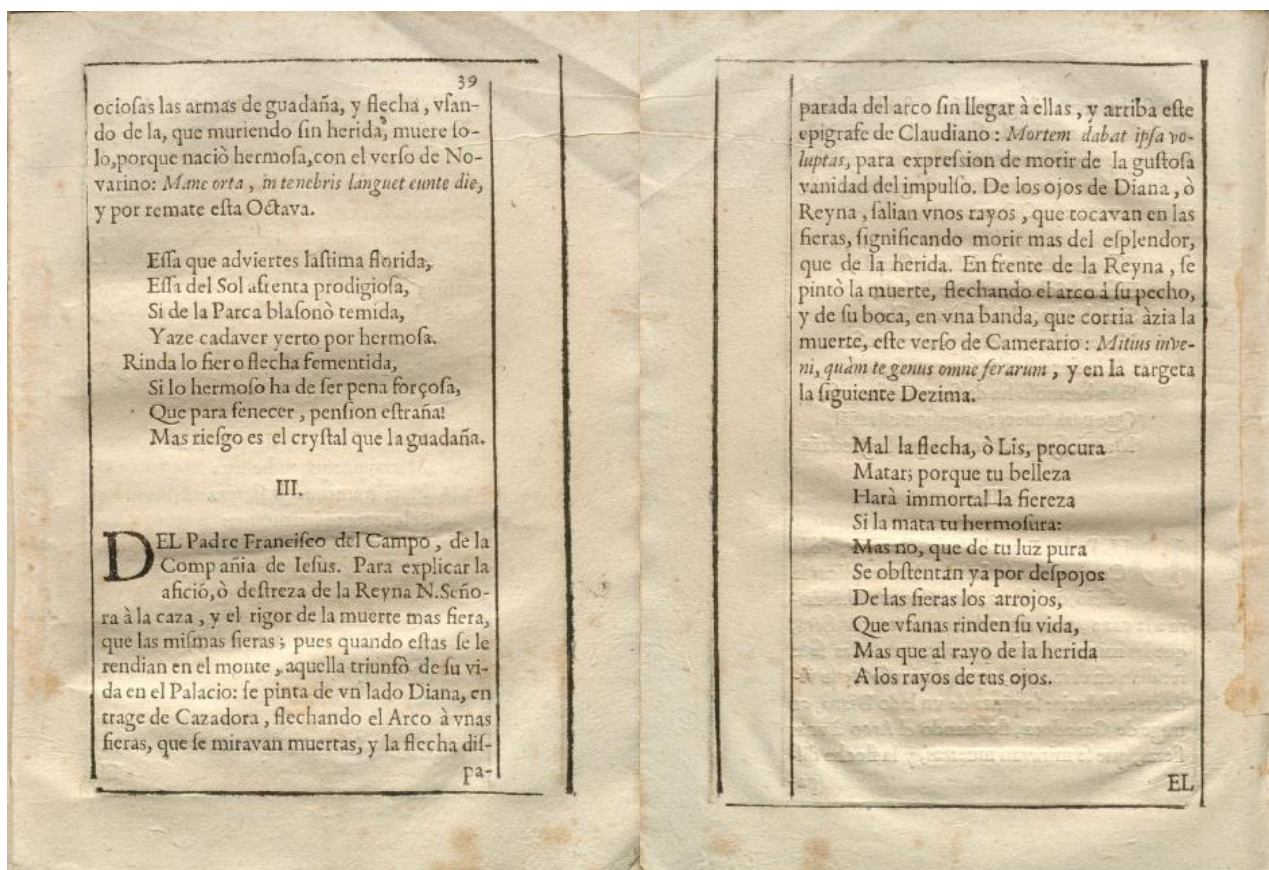 39
ociosas las armas de guadaña, y flecha, vsan-
do de la, que muriendo sin herida, muere so-
lo, porque naciò hermosa, con el verso de No-
varino: Mane orta, in tenebris languet eunte die,
y por remate esta Octava.
Essa que adviertes lastima florida,
Essa del Sol afrenta prodigiosa,
Si de la Parca blasonò temida,
Yaze cadaver yerto por hermosa.
Rinda lo fiero flecha fementida,
Si lo hermoso ha de ser pena forçosa,
Que para fenecer, pension estraña!
Mas riesgo es el crystal que la guadaña.
III.
DEL Padre Francisco del Campo, de la
Compañia de Iesus. Para explicar la
afició, ò destreza de la Reyna N. Seño-
ra à la caza, y el rigor de la muerte mas fiera,
que las mismas fieras; pues quando estas se le
rendian en el monte, aquella triunfò de su vi-
da en el Palacio: se pinta de vn lado Diana, en
trage de Cazadora, flechando el Arco à vnas
fieras, que se miravan muertas, y la flecha dis-
pa-
parada del arco sin llegar à ellas, y arriba este
epigrafe de Claudiano: Mortem dabat ipsa vo-
luptas, para expression de morir de la gustosa
vanidad del impulso. De los ojos de Diana, ò
Reyna, salian vnos rayos, que tocavan en las
fieras, significando morir mas del esplendor,
que de la herida. En frente de la Reyna, se
pintò la muerte, flechando el arco à su pecho,
y de su boca, en vna banda, que corria àzia la
muerte, este verso de Camerario: Mitius inve-
ni, quàm te genus omne ferarum, y en la targeta
la siguiente Dezima.
Mal la flecha, ò Lis, procura
Matar; porque tu belleza
Harà immortal la fiereza
Si la mata tu hermosura:
Mas no, que de tu luz pura
Se obstentan ya por despojos
De las fieras los arrojos,
Que vfanas rinden su vida,
Mas que al rayo de la herida
A los rayos de tus ojos.
EL